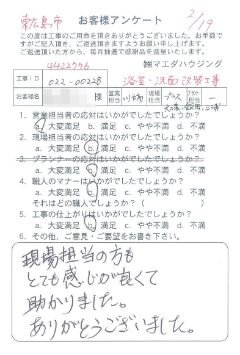 東広島市
お客様アンケート
2/19
この度は工事のご用命を頂きありがとうございました。お手数で
すがご記入頂き、ご返送頂きますようお願い申し上げます。
ご返送頂いた方から、毎月抽選で感謝品を進呈いたします。
㈱マエダハウジング
工事ID 022-00228 浴室・洗面改築工事
お客様名 様 営業担当 現場担当 プランナー担当
1. 営業担当者の応対はいかがでしたでしょうか？
a. 大変満足 b. 満足 c. やや不満 d. 不満
2. 現場担当者の応対はいかがでしたでしょうか？
a. 大変満足 b. 満足 c. やや不満 d. 不満
3. プランナーの応対はいかがでしたでしょうか？
a. 大変満足 b. 満足 c. やや不満 d. 不満
4. 職人のマナーはいかがでしたでしょうか？
a. 大変満足 b. 満足 c. やや不満 d. 不満
それはどの職人でしょうか？( )
5. 工事の仕上がりはいかがでしたでしょうか？
a. 大変満足 b. 満足 c. やや不満 d. 不満
6. その他、ご意見・ご要望をお書き下さい。
現場担当の方も
とても感じが良くて
助かりました。
ありがとうございました。